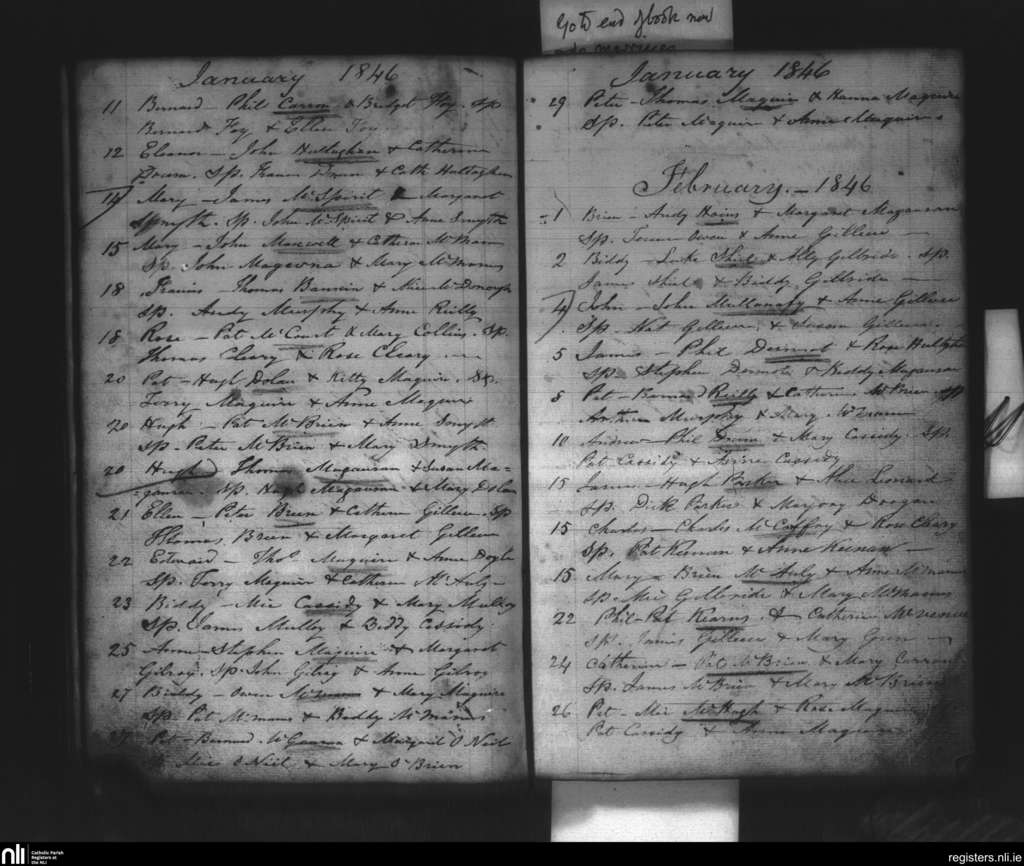 Go to end of book now
January 1846
11 Bernard - Phil Carron & Bridget Foy. Sp.
Bernard Foy & Ellen Foy
12 Eleanor - John Hallaghan & Catherine
Drum. Sp. & Cath Hallaghan
14 Mary - James McSpirit & Margaret
Smyth. Sp. John McSpirit & Anne Smyth
15 Mary - John Maxwell & Catherine
Sp. John & Mary McManus
18 Francis - Thomas & McDonogh
Sp. Andy Murphy & Anne Reilly
18 Rose - Pat McCourt & Mary Collins. Sp.
Thomas Cleary & Rose Cleary
20 Pat - Hugh Dolan & Kitty Maguire. Sp.
Terry Maguire & Anne Maguire
20 Hugh - Pat McBrien & Anne Smyth
Sp. Peter McBrien & Mary Smyth
20 Hugh Thomas Magauran & Susan Ma=
=gauran. Sp. Hugh Magauran & Mary Dolan
21 Ellen - Peter Breen & Catherine Gilleen. Sp
Thomas Breen & Margaret Gilleen
22 Edward - Thos Maguire & Anne Doyle
Sp. Terry Maguire & Catherine McAuly
23 Biddy - Mic Cassidy & Mary Mulloy
Sp. James Mulloy & Biddy Cassidy
25 Anne - Stephen Maguire & Margaret
Gilroy. Sp. John Gilroy & Anne Gilroy
27 Biddy - Owen McManus & Mary Maguire
Sp. Pat McManus & Biddy McManus
27 Pat - Bernard McGaurn & Margaret O'Neil
O'Neil & Mary O'Brien
January 1846
29 Peter - Thomas Maguire & Hanna Maguire
Sp. Peter Maguire & Anne Maguire
February. - 1846
1 Brien - Andy & Margaret Magauran
Sp. Owen & Anne Gilleen
2 Biddy - Luke & Ally Gilbride. Sp.
James & Biddy Gilbride
4 John - John Mullanafy & Anne Gilleen
Sp. Nat Gilleen & Susan Gilleen
5 James - Phil Dermot & Rose
Sp. Stephen Dermot & Biddy Magauran
8 Pat - Bernard Reilly & Catherine McBrien. Sp
Arthur Murphy & Mary
10 Andrew - Phil Drum & Mary Cassidy. Sp.
Pat Cassidy & Anne Cassidy
15 James - Hugh Parker & Alice Leonard
Sp. Dick Parker & Marjory
15 Charles - Charles McCaffry & Rose Cleary
Sp. Pat Keenan & Anne Keenan
15 Mary - Brien McAuly & Anne McManus
Sp. Mic Gilbride & Mary McManus
22 Phil - Pat Kearns & Catherine
Sp. James Gilleen & Mary
24 Catherine - Pat McBrien & Mary Curran
Sp. James McBrien & Mary McBrien
26 Pat - Mic McHugh & Rose Maguire
Pat Cassidy & Anne Maguire
nli Catholic Parish
Registers at
the NLI
registers.nli.ie